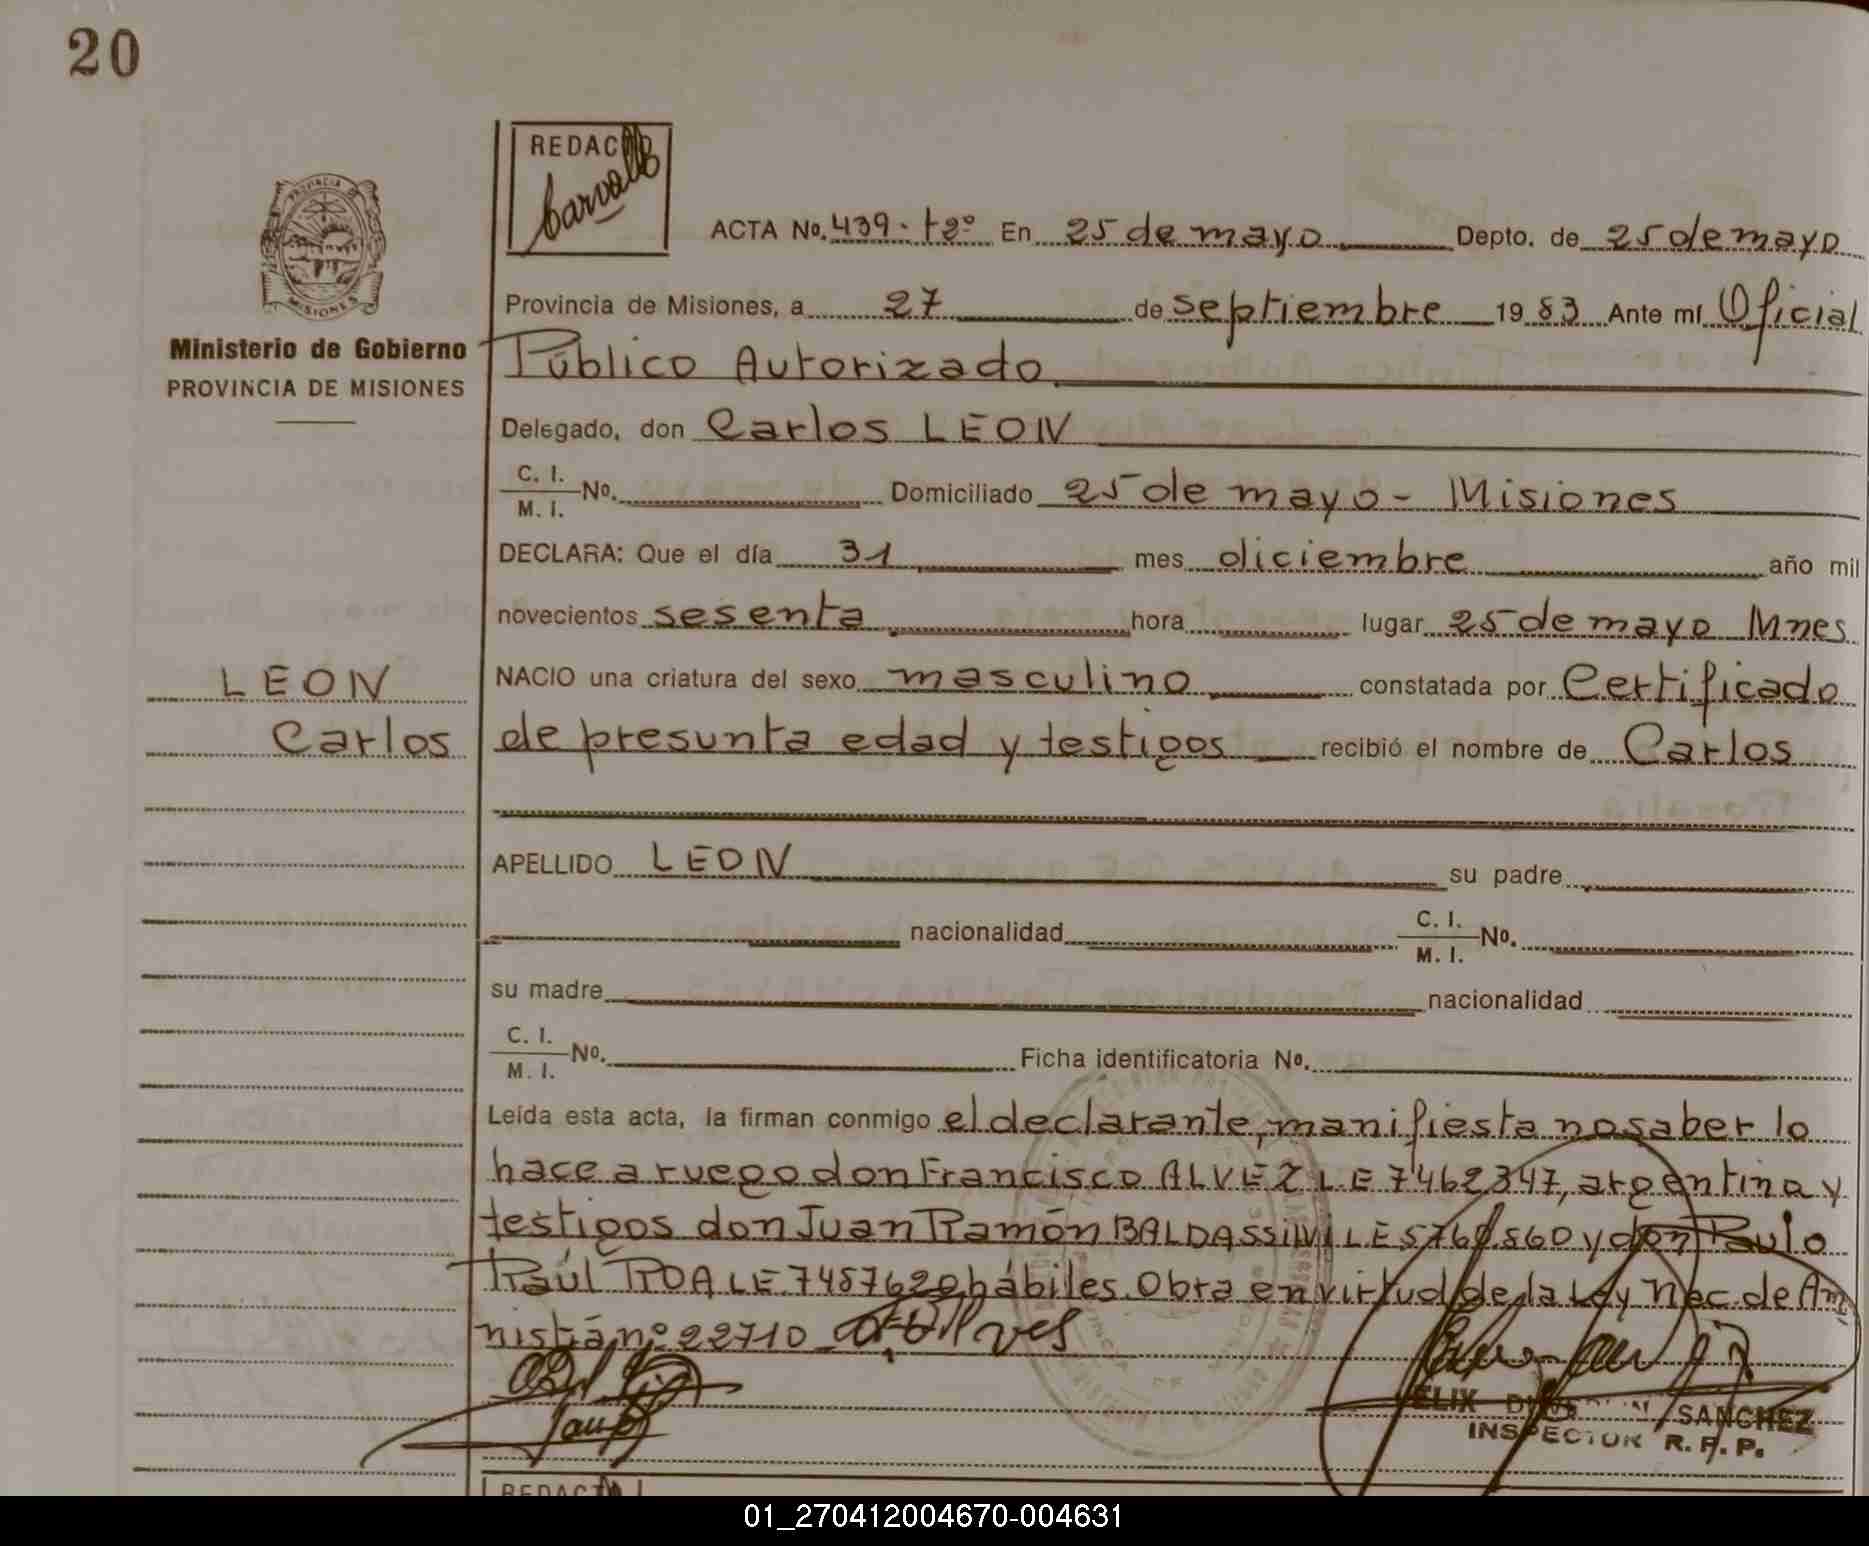 20
REDACTO
Carvallo
ACTA No. 439. tº2º En 25 de mayo Depto. de 25 de mayo
Provincia de Misiones, a 27 de septiembre 19 83 Ante mí Oficial
Ministerio de Gobierno
PROVINCIA DE MISIONES
Público Autorizado
Delegado, don Carlos LEON
C. I.
M. I. No. Domiciliado 25 de mayo - Misiones
DECLARA: Que el día 31 mes diciembre año mil
novecientos sesenta hora lugar 25 de mayo Mnes
LEON
Carlos
NACIO una criatura del sexo masculino constatada por Certificado
de presunta edad y testigos recibió el nombre de Carlos
APELLIDO LEON su padre
nacionalidad C. I.
M. I. No.
su madre nacionalidad
C. I.
M. I. No. Ficha identificatoria No.
Leída esta acta, la firman conmigo el declarante, manifiesta no saber lo
hace a ruego don Francisco ALVEZ LE 7462347, argentina y
testigos don Juan Ramón BALDASSINI LE 560 y don Paulo
Raúl RODA LE hábiles. Obra en virtud de la Ley Nac. de Am
nistía nº 22710
SANCHEZ
INSPECTOR R. P. P.
REDACTO
01_270412004670-004631